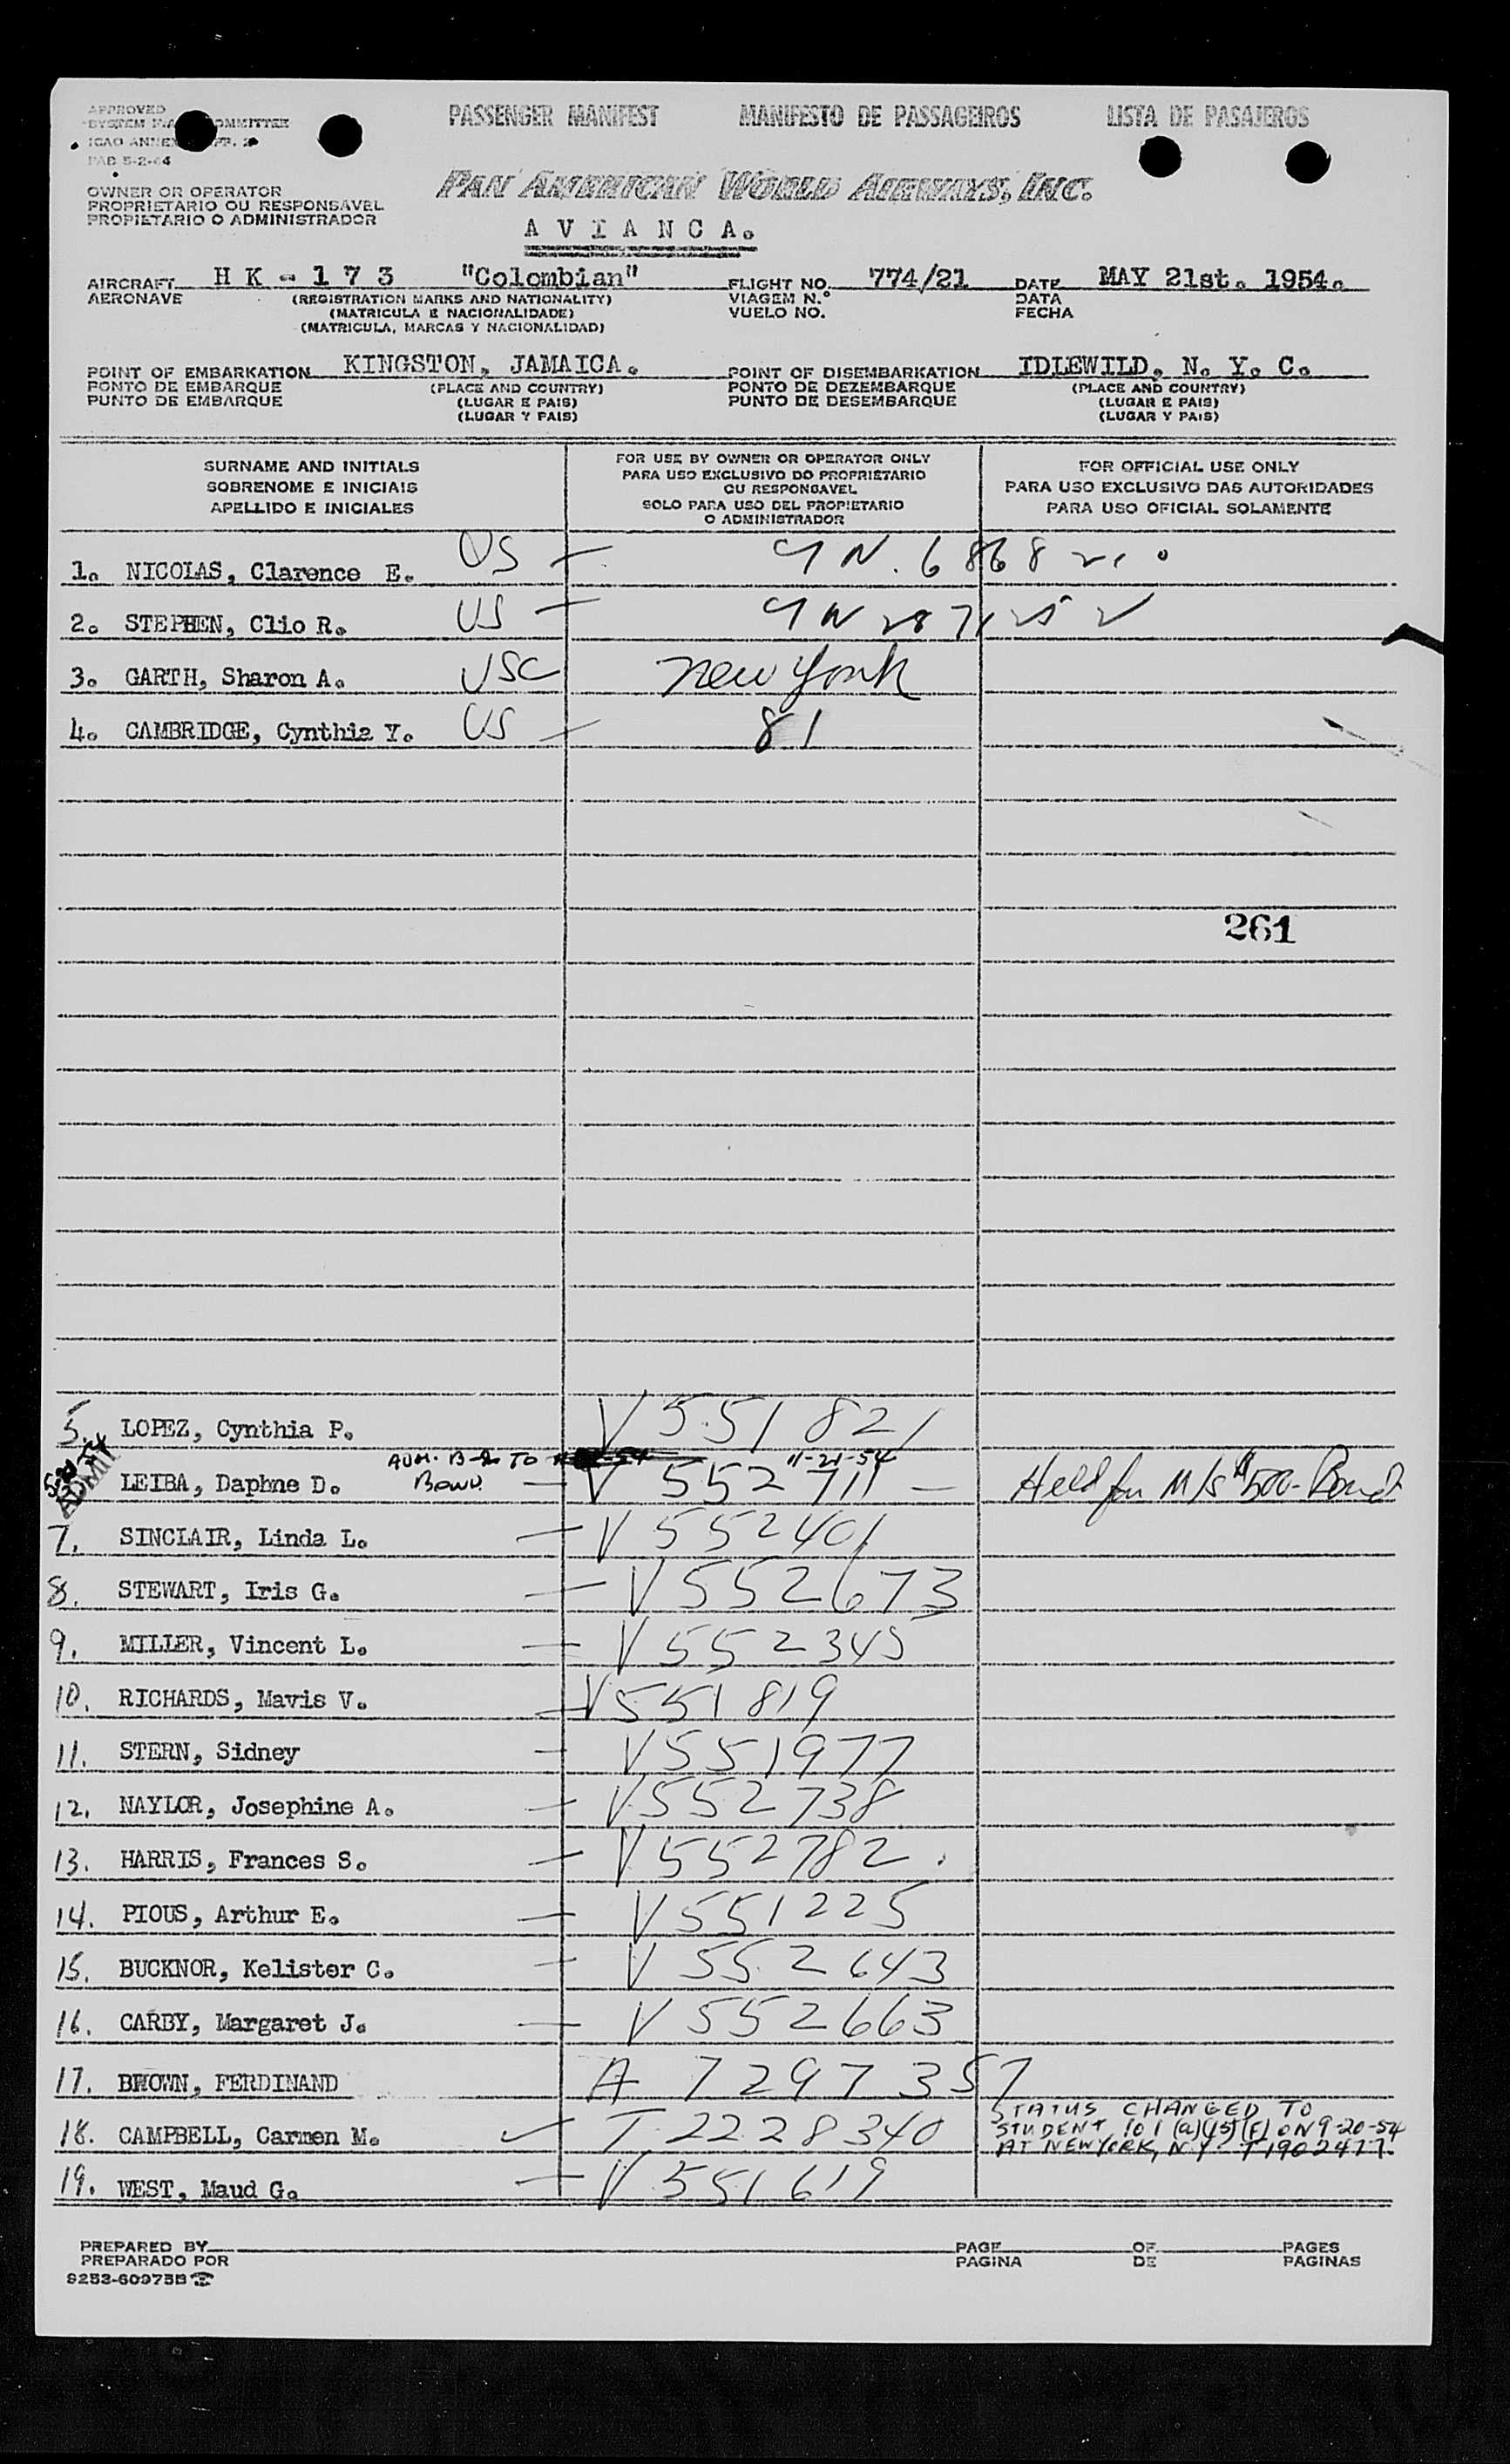 APPROVED
ICAO ANNEX
PAB 5-2-44
PASSENGER MANIFEST MANIFESTO DE PASSAGEIROS LISTA DE PASAJEROS
PAN AMERICAN WORLD AIRWAYS, INC.
OWNER OR OPERATOR
PROPRIETARIO OU RESPONSAVEL
PROPIETARIO O ADMINISTRADOR
A V I A N C A.
AIRCRAFT H K - 1 7 3 "Colombian" FLIGHT NO. 774/21 DATE MAY 21st. 1954.
AERONAVE (REGISTRATION MARKS AND NATIONALITY) VIAGEM N.° DATA
(MATRICULA E NACIONALIDADE) VUELO NO. FECHA
(MATRICULA, MARCAS Y NACIONALIDAD)
POINT OF EMBARKATION KINGSTON, JAMAICA. POINT OF DISEMBARKATION IDLEWILD, N. Y. C.
PONTO DE EMBARQUE (PLACE AND COUNTRY) PONTO DE DEZEMBARQUE (PLACE AND COUNTRY)
PUNTO DE EMBARQUE (LUGAR E PAIS) PUNTO DE DESEMBARQUE (LUGAR E PAIS)
(LUGAR Y PAIS) (LUGAR Y PAIS)
SURNAME AND INITIALS
SOBRENOME E INICIAIS
APELLIDO E INICIALES
FOR USE BY OWNER OR OPERATOR ONLY
PARA USO EXCLUSIVO DO PROPRIETARIO
OU RESPONSAVEL
SOLO PARA USO DEL PROPIETARIO
O ADMINISTRADOR
FOR OFFICIAL USE ONLY
PARA USO EXCLUSIVO DAS AUTORIDADES
PARA USO OFICIAL SOLAMENTE
1. NICOLAS, Clarence E. US
2. STEPHEN, Clio R. US
3. GARTH, Sharon A. USC New York
4. CAMBRIDGE, Cynthia Y. US 81
261
5. LOPEZ, Cynthia P. V 551821
ADM. B-2 TO 11-21-54
ADMIT LEIBA, Daphne D. Bond V 552711 Held for M/S $500- Bond
7. SINCLAIR, Linda L. V 552401
8. STEWART, Iris G. V 552673
9. MILLER, Vincent L. V 552345
10. RICHARDS, Mavis V. V 551819
11. STERN, Sidney V 551977
12. NAYLOR, Josephine A. V 552738
13. HARRIS, Frances S. V 552782.
14. PIOUS, Arthur E. V 551225
15. BUCKNOR, Kelister C. V 552643
16. CARBY, Margaret J. V 552663
17. BROWN, FERDINAND A 7297357
STATUS CHANGED TO
18. CAMPBELL, Carmen M. T 2228340 STUDENT 101 (a)(15)(F) ON 9-20-54
AT NEW YORK, N.Y. T1902477
19. WEST, Maud G. V 551619
PREPARED BY PAGE OF PAGES
PREPARADO POR PAGINA DE PAGINAS
9253-60975B